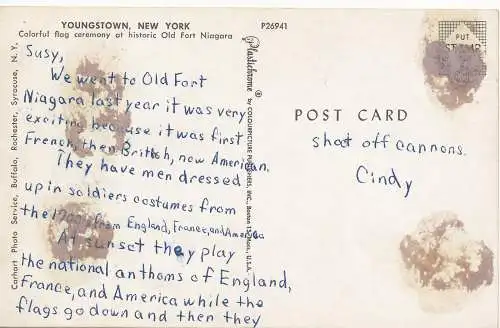 YOUNGSTOWN, NEW YORK
Colorful flag ceremony at historic Old Fort Niagara
P26941
PUT
Susy,
We went to Old Fort
Niagara last year it was very
exciting because it was first
French, then British, now American.
They have men dressed
up in soldiers costumes from
the 1700, from England, France, and America
At sunset they play
the national anthoms of England,
France, and America while the
flags go down and then they
Plastichrome ®
by COLOURPICTURE PUBLISHERS, INC., Boston 15, Mass., U.S.A.
POST CARD
shoot off cannons.
Cindy
Carhart Photo Service, Buffalo, Rochester, Syracuse, N. Y.